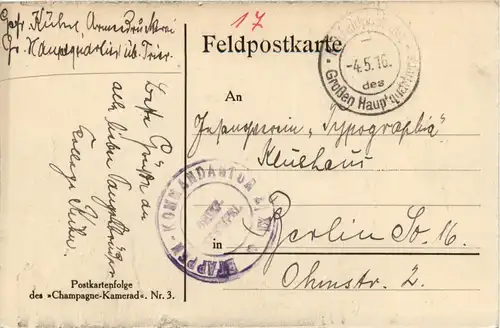 Gefr. Kühne, Armeedruckerei
Gr. Hauptquartier üb. Trier.
17
Feldpostkarte
-4.5.16.
des
Großen Hauptquartiers
An
Gesangverein „Typographia"
Klubhaus
in Berlin So. 16.
Ohmstr. 2.
Beste Grüße an
alle lieben Sangesbrüder
Kollege Kühne.
ETAPPEN-KOMMANDANTUR
Postkartenfolge
des »Champagne-Kamerad«. Nr. 3.